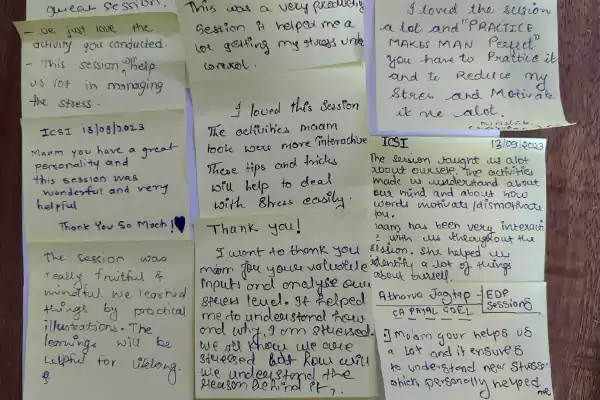 great session.
- we just love the
activity you conducted.
- This session will help
us lot in managing
the stress.
ICSI 13/09/2023
Maam you have a great
personality and
this session was
wonderful and very
helpful
Thank You So Much!
The session was
really fruitful &
mindful. we learned
things by practical
illustrations. The
learnings will be
helpful for lifelong.
This was a very productive
session it helped me a
lot getting my stress under
control.
I loved this session
The activities maam
took were more interactive
These tips and tricks
will help to deal
with stress easily.
Thank you!
I want to thank you
mam for your valuable
inputs and analyse our
stress level. It helped
me to understand how
and why I am stressed.
we all know we are
stressed but how will
we understand the
reason behind it,
I loved the session
a lot and "PRACTICE
MAKES MAN Perfect"
you have to Practice it
and to Reduce my
Stress and Motivate
it me alot.
ICSI 13/09/2023
The session taught us alot
about ourself. The activities
made us understand about
our mind and about how
words motivate/dismotivate
you.
maam has been very interacti
with us throughout the
session. She helped us
identify a lot of things
about ourself.
Atharva Jagtap - EDP
CA PAYAL GOEL sessions
Maam your helps us
a lot and it ensures
to understand new stress
which personally helped
me